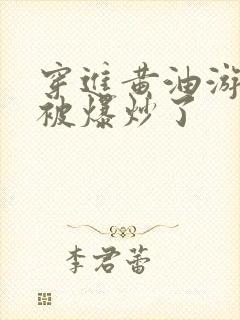 穿进黄油游
被爆炒了
李君蕾